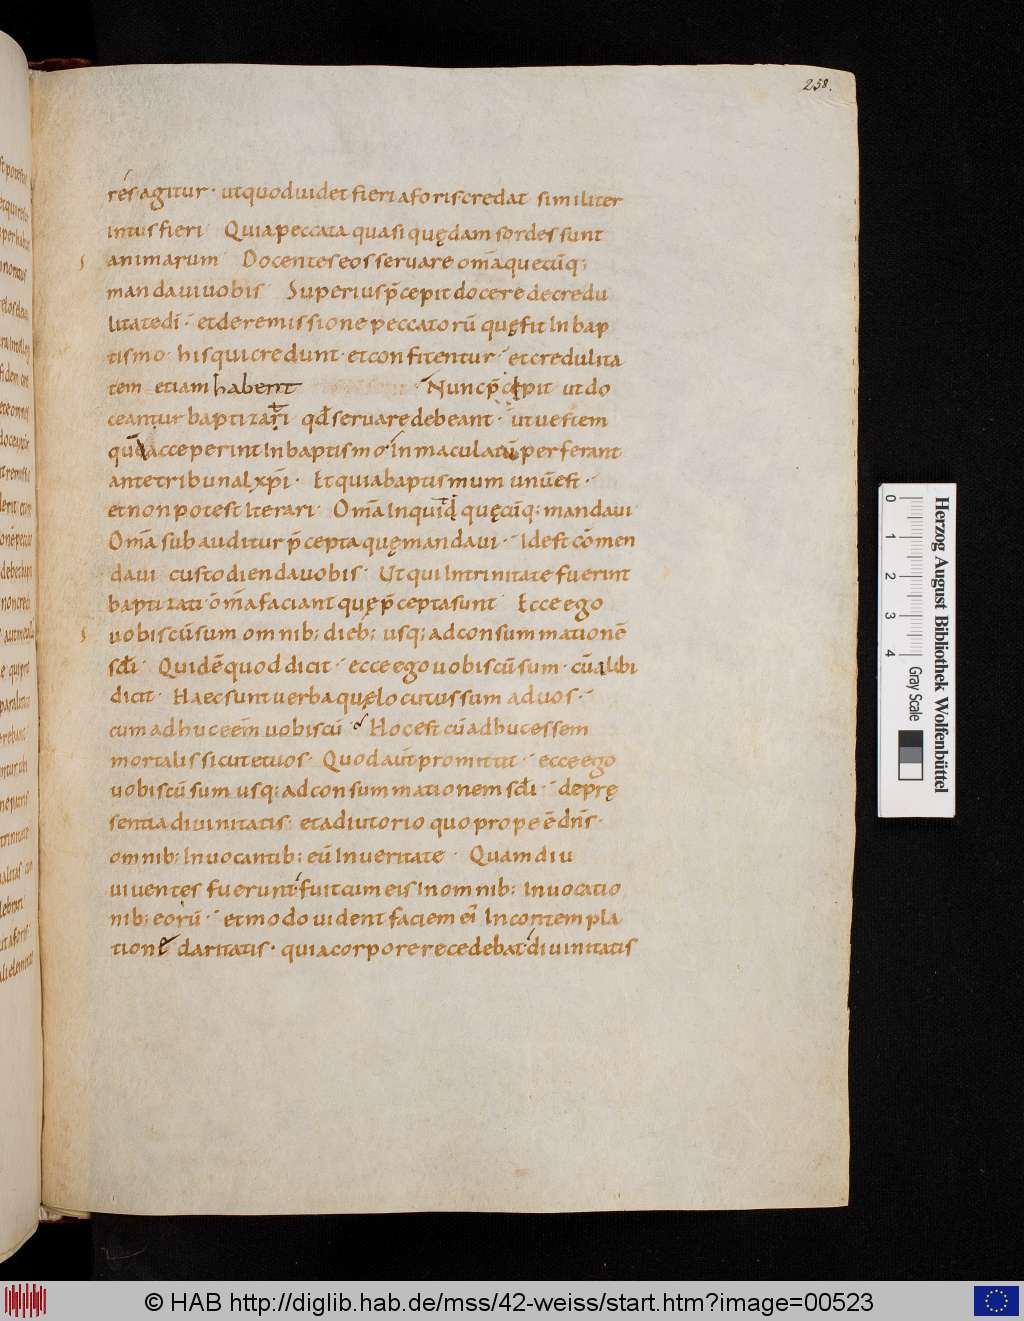 258.
res agitur · ut quod uidet fieri aforis credat similiter
intus fieri Quia peccata quasi quędam sordes sunt
animarum Docentes eos seruare om̄a quecūq;
mandaui uobis Superius p̄cepit docere decredu
litate dī · et deremissione peccatorū quę fit In bap
tismo · his qui credunt · et confitentur · et credulita
tem etiam habent Nunc p̄cepit ut do
ceantur baptizati qđ seruare debeant · ut uestem
quā acceperint In baptismo Inmaculatā perferant
ante tribunal xp̄i · Et quia baptismum unū est ·
et non potest Iterari · Om̄a Inquid quęcūq; mandaui
Om̄a subauditur p̄cepta quę mandaui · Id est cōmen
daui custodienda uobis · Ut qui In trinitate fuerint
baptizati om̄a faciant quę p̄cepta sunt Ecce ego
uobiscū sum omnib; dieb; usq; ad consummationē
scłi · Quidē quod dicit · ecce ego uobiscū sum · cū alibi
dicit · Haec sunt uerba quę locutus sum ad uos ·
cum adhuc eēm uobiscū · Hoc est cū adhuc essem
mortalis sicut et uos · Quod aūt promittit · ecce ego
uobiscū sum usq; ad consummationem scłi · de prę
sentia diuinitatis · et adiutorio quo prope ē dn̄s ·
omnib; Inuocantib; eū In ueritate · Quamdiu
uiuentes fuerunt fuit cum eis In omnib; Inuocatio
nib; eorū · et modo uident faciem eī In contempla
tione claritatis · quia corpore recedebat diuinitatis
0 1 2 3 4
Gray Scale
Herzog August Bibliothek Wolfenbüttel
© HAB http://diglib.hab.de/mss/42-weiss/start.htm?image=00523